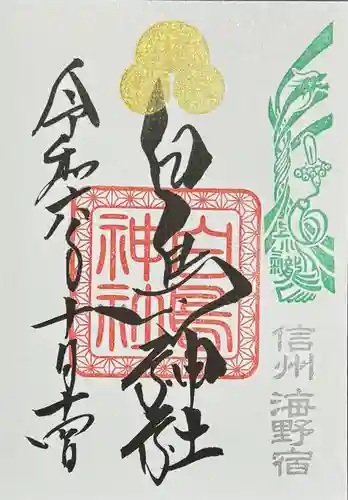 信州 海野宿
白鳥神社
白鳥
神社
令和六年十月十四日